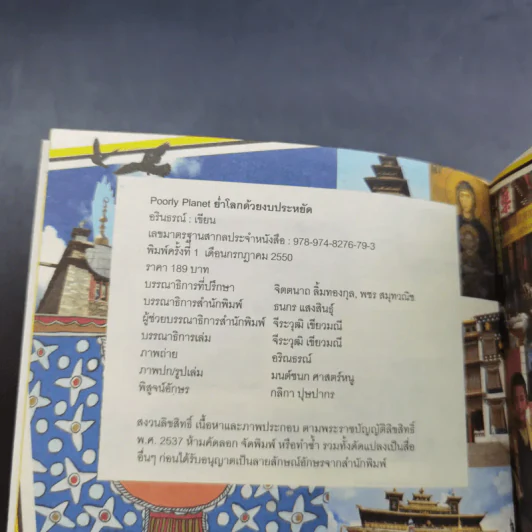 Poorly Planet ย่ำโลกด้วยงบประหยัด
อรินธรณ์ : เขียน
เลขมาตรฐานสากลประจำหนังสือ : 978-974-8276-79-3
พิมพ์ครั้งที่ 1 เดือนกรกฎาคม 2550
ราคา 189 บาท
บรรณาธิการที่ปรึกษา จิตตนาถ ลิ้มทองกุล, พชร สมุทวณิช
บรรณาธิการสำนักพิมพ์ ธนกร แสงสินธุ์
ผู้ช่วยบรรณาธิการสำนักพิมพ์ จีระวุฒิ เขียวมณี
บรรณาธิการเล่ม จีระวุฒิ เขียวมณี
ภาพถ่าย อริณธรณ์
ภาพปก/รูปเล่ม มนต์ชนก ศาสตร์หนู
พิสูจน์อักษร กลิกา ปุษปากร
สงวนลิขสิทธิ์ เนื้อหาและภาพประกอบ ตามพระราชบัญญัติลิขสิทธิ์
พ.ศ. 2537 ห้ามคัดลอก จัดพิมพ์ หรือทำซ้ำ รวมทั้งดัดแปลงเป็นสื่อ
อื่นๆ ก่อนได้รับอนุญาตเป็นลายลักษณ์อักษรจากสำนักพิมพ์